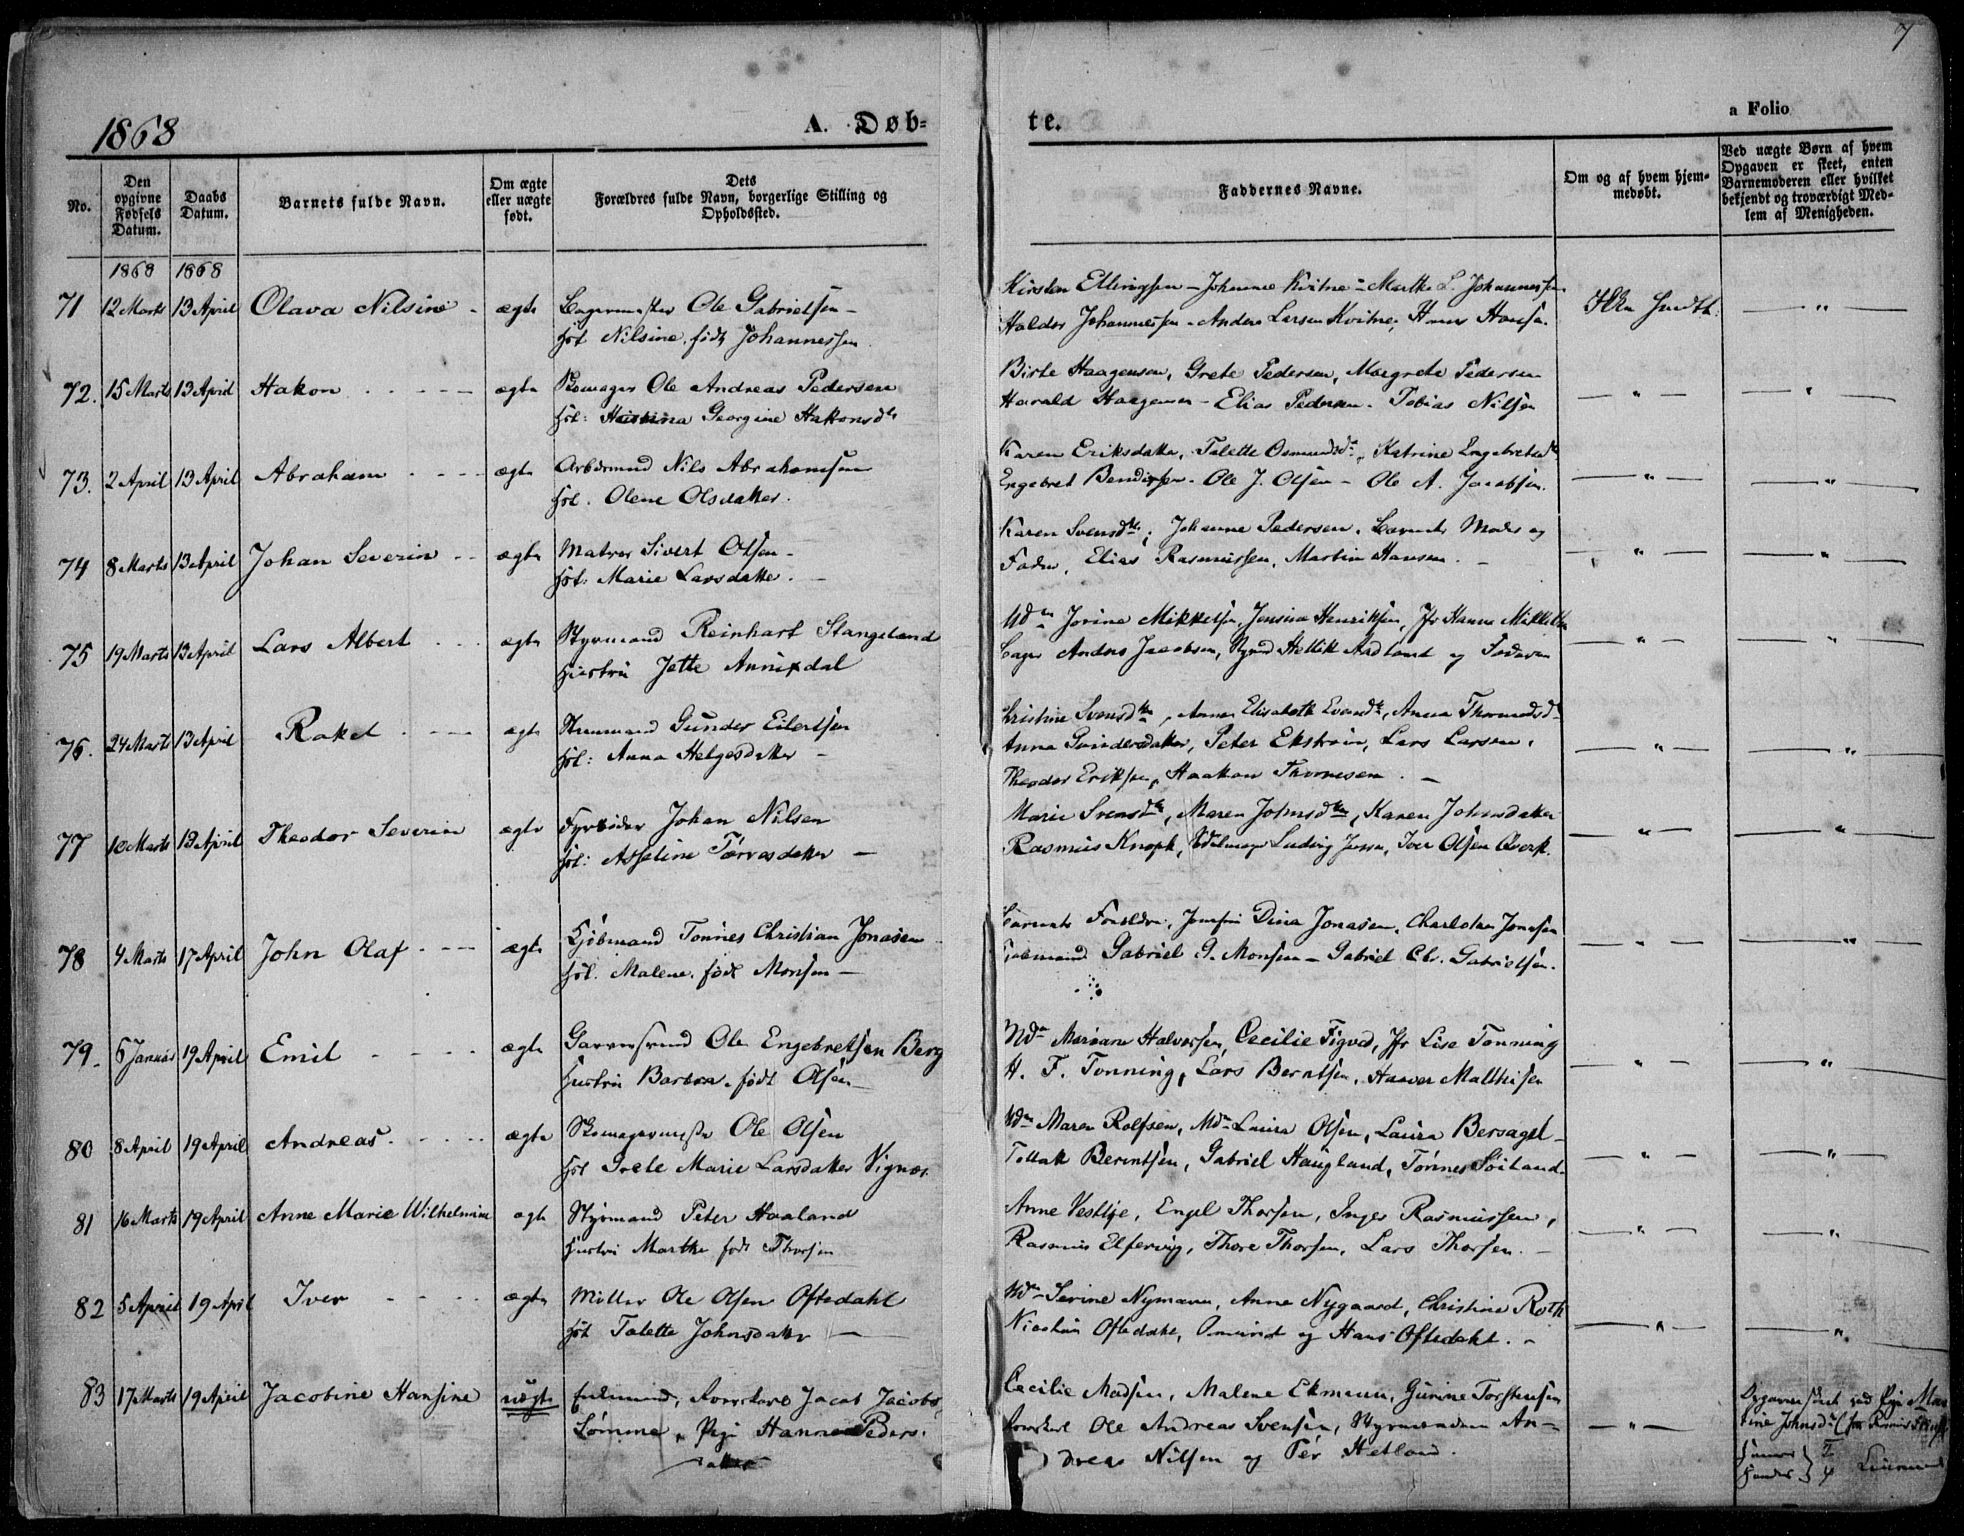 7
1868
A. Døb-
te.
a Folio
No.
Den opgivne Fødsels Datum.
Daabs Datum.
Barnets fulde Navn.
Om ægte eller uægte født.
Dets Forældres fulde Navn, borgerlige Stilling og Opholdssted.
Faddernes Navne.
Om og af hvem hjemmedøbt.
Ved uægte Børn af hvem Opgaven er skeet, enten Barnemoderen eller hvilket bekjendt og troværdigt Medlem af Menigheden.
1868 1868
71 12 Marts 13 April Olava Nilsine - ægte Ole Gabrielsen -
Hst Nilsine, født Johannessen
Kirsten Ellingsen - Johanne Kvitne - Marthe L. Johannessen
Halder Johannessen - Anders Larsen Kvitne, Hans Hansen
72. 15 Marts 13 April Hakon ægte Skomager Ole Andreas Pedersen
Hst: Georgine Hakonsdtr
Birte Haagensen, Grete Pedersen, Margrete Pedersen
Harald Haagensen - Elias Pedersen - Tobias Nilsen
73. 2 April 13 April Abraham ægte Arbdmand Nils Abrahamsen
Hst. Olene Olsdatter.
Karen Eriksdatter, Talette Osmundsdr, Katrine Engebretsdr
Engebret Bendixsen - Ole J. Olsen - Ole A. Jacobsen.
74 8 Marts 13 April Johan Severin ægte Matros Sivert Olsen -
Hst: Marie Larsdatter. -
Karen Svensdtr, Johanne Pedersen, Barnets Moder og
Fader, Elias Rasmussen, Martin Hansen. -
75 19 Marts 13 April Lars Albert ægte Styrmand Reinhart Stangeland
Hustru Jette
Mdm Jorine Mikkelsen, Jensine Henriksen, Jfr Hanne Mikkelsen
Anders Jacobsen, Aadland og Faderen
76. 24 Marts 13 April Rakel ægte Gunder Eilertsen
Hst: Anna Helgesdatter -
Christine Svensdtr, Anne Elisabeth Evensdtr, Anna Thormodsdr
Anna Gundersdatter, Peter Ekstrøm, Lars Larsen,
Theodor Eriksen, Haakon Thornesen. -
77 10 Marts 13 April Theodor Severin ægte Fyrbøder Johan Nilsen
Hst: Asseline Tørresdatter -
Marie Svensdtr, Maren Johnsdtr, Karen Johnsdatter
Rasmus Knoph, Ludvig Jensen, Iver Olsen
78 4 Marts 17 April John Olaf ægte Kjøbmand Tønnes Christian Jonasen
Hst. Malene, født Monsen -
Barnets Forældre, Jomfru Dina Jonasen, Charlotte Jonasen
Gabriel G. Monsen - Gabriel Chr. Gabrielsen.
79. 6 Januar 19 April Emil ægte Garversvend Ole Engebretsen Berg
Hustru Barbra, født Olsen
Mdm Mariane Halvorsen, Cecilie Tigved, Jfr Lise Tønning
H. F. Tønning, Lars Berntsen, Haaver Matthisen
80 8 April 19 April Andreas ægte Skomagermester Ole Olsen
Hst Grete Marie Larsdatter Vignæs
Mdm Maren Rolfsen, Mdm Laura Olsen, Laura Bersagel -
Tollak Berentsen, Gabriel Haugland, Tønnes Søiland
81 16 Marts 19 April Anne Marie Wilhelmine ægte Styrmand Peter Haaland
Hustru Marthe født Thorsen
Anne Vestlye, Engel Thorsen, Inger Rasmussen,
Rasmus Elfervig, Thore Thorsen, Lars Thorsen. -
82 5 April 19 April Iver ægte Møller Ole Olsen Oftedahl
Hst Talette Johnsdatter -
Mdm Serine Nymann, Anne Nygaard, Christine Roth
Oftedahl, Omund og Hans Oftedahl. -
83 17 Marts 19 April Jacobine Hansine uægte Jacob Jacobs.
Sømme, Pige Hanne Peders-
datter
Cecilie Madsen, Malene Ekmann, Gurine Torstensen
Ole Andreas Svensen, Styrmændene An-
dreas Nilsen og Per Hetland.